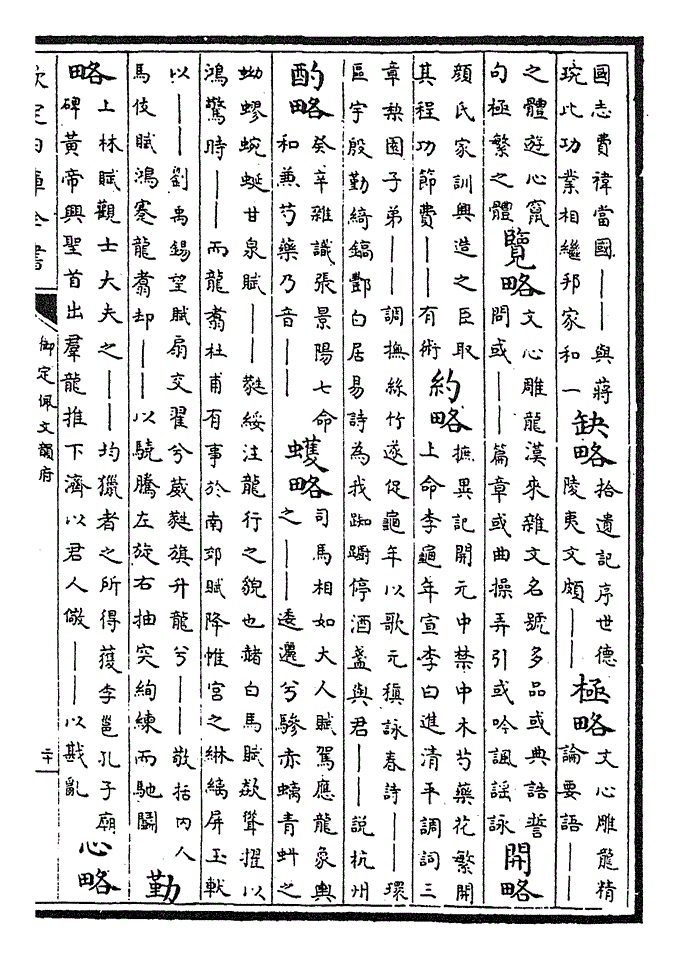 國志費禕當國——與蔣
琬比功業相繼邦家和一
缺略
拾遺記序世德
陵夷文頗——
極略
文心雕龍精
論要語——
之體遊心竄
句極繁之體
覽略
文心雕龍漢來雜文名號多品或典誥誓
問或——篇章或曲操弄引或吟諷謡詠
開略
顔氏家訓興造之臣取
其程功節費——有術
約略
摭異記開元中禁中木芍藥花繁開
上命李龜年宣李白進清平調詞三
章梨園子弟——調撫絲竹遂促龜年以歌元稹詠春詩——環
區宇殷勤綺鎬酆白居易詩為我踟躕停酒盞與君——說杭州
酌略
癸辛雜識張景陽七命
和兼芍藥乃音——
蠖略
司馬相如大人賦駕應龍象輿
之——逶邐兮驂赤螭青虯之
蚴蟉蜿蜒甘泉賦——蕤綏注龍行之貌也赭白馬賦欻聳擢以
鴻驚時——而龍翥杜甫有事於南郊賦降帷宮之綝纚屏玉軑
以——劉禹錫望賦扇交翟兮葳蕤旗升龍兮——敬括内人
馬伎賦鴻蹇龍翥却——以驍騰左旋右抽突絢練而馳鬬
勤
略
上林賦觀士大夫之——均獵者之所得獲李邕孔子廟
碑黃帝興聖首出羣龍推下濟以君人儆——以戡亂
心略
欽定四庫全書
御定佩文韻府
二十